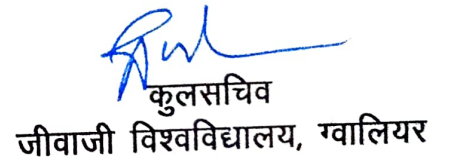 कुलसचिव
जीवाजी विश्वविद्यालय, ग्वालियर